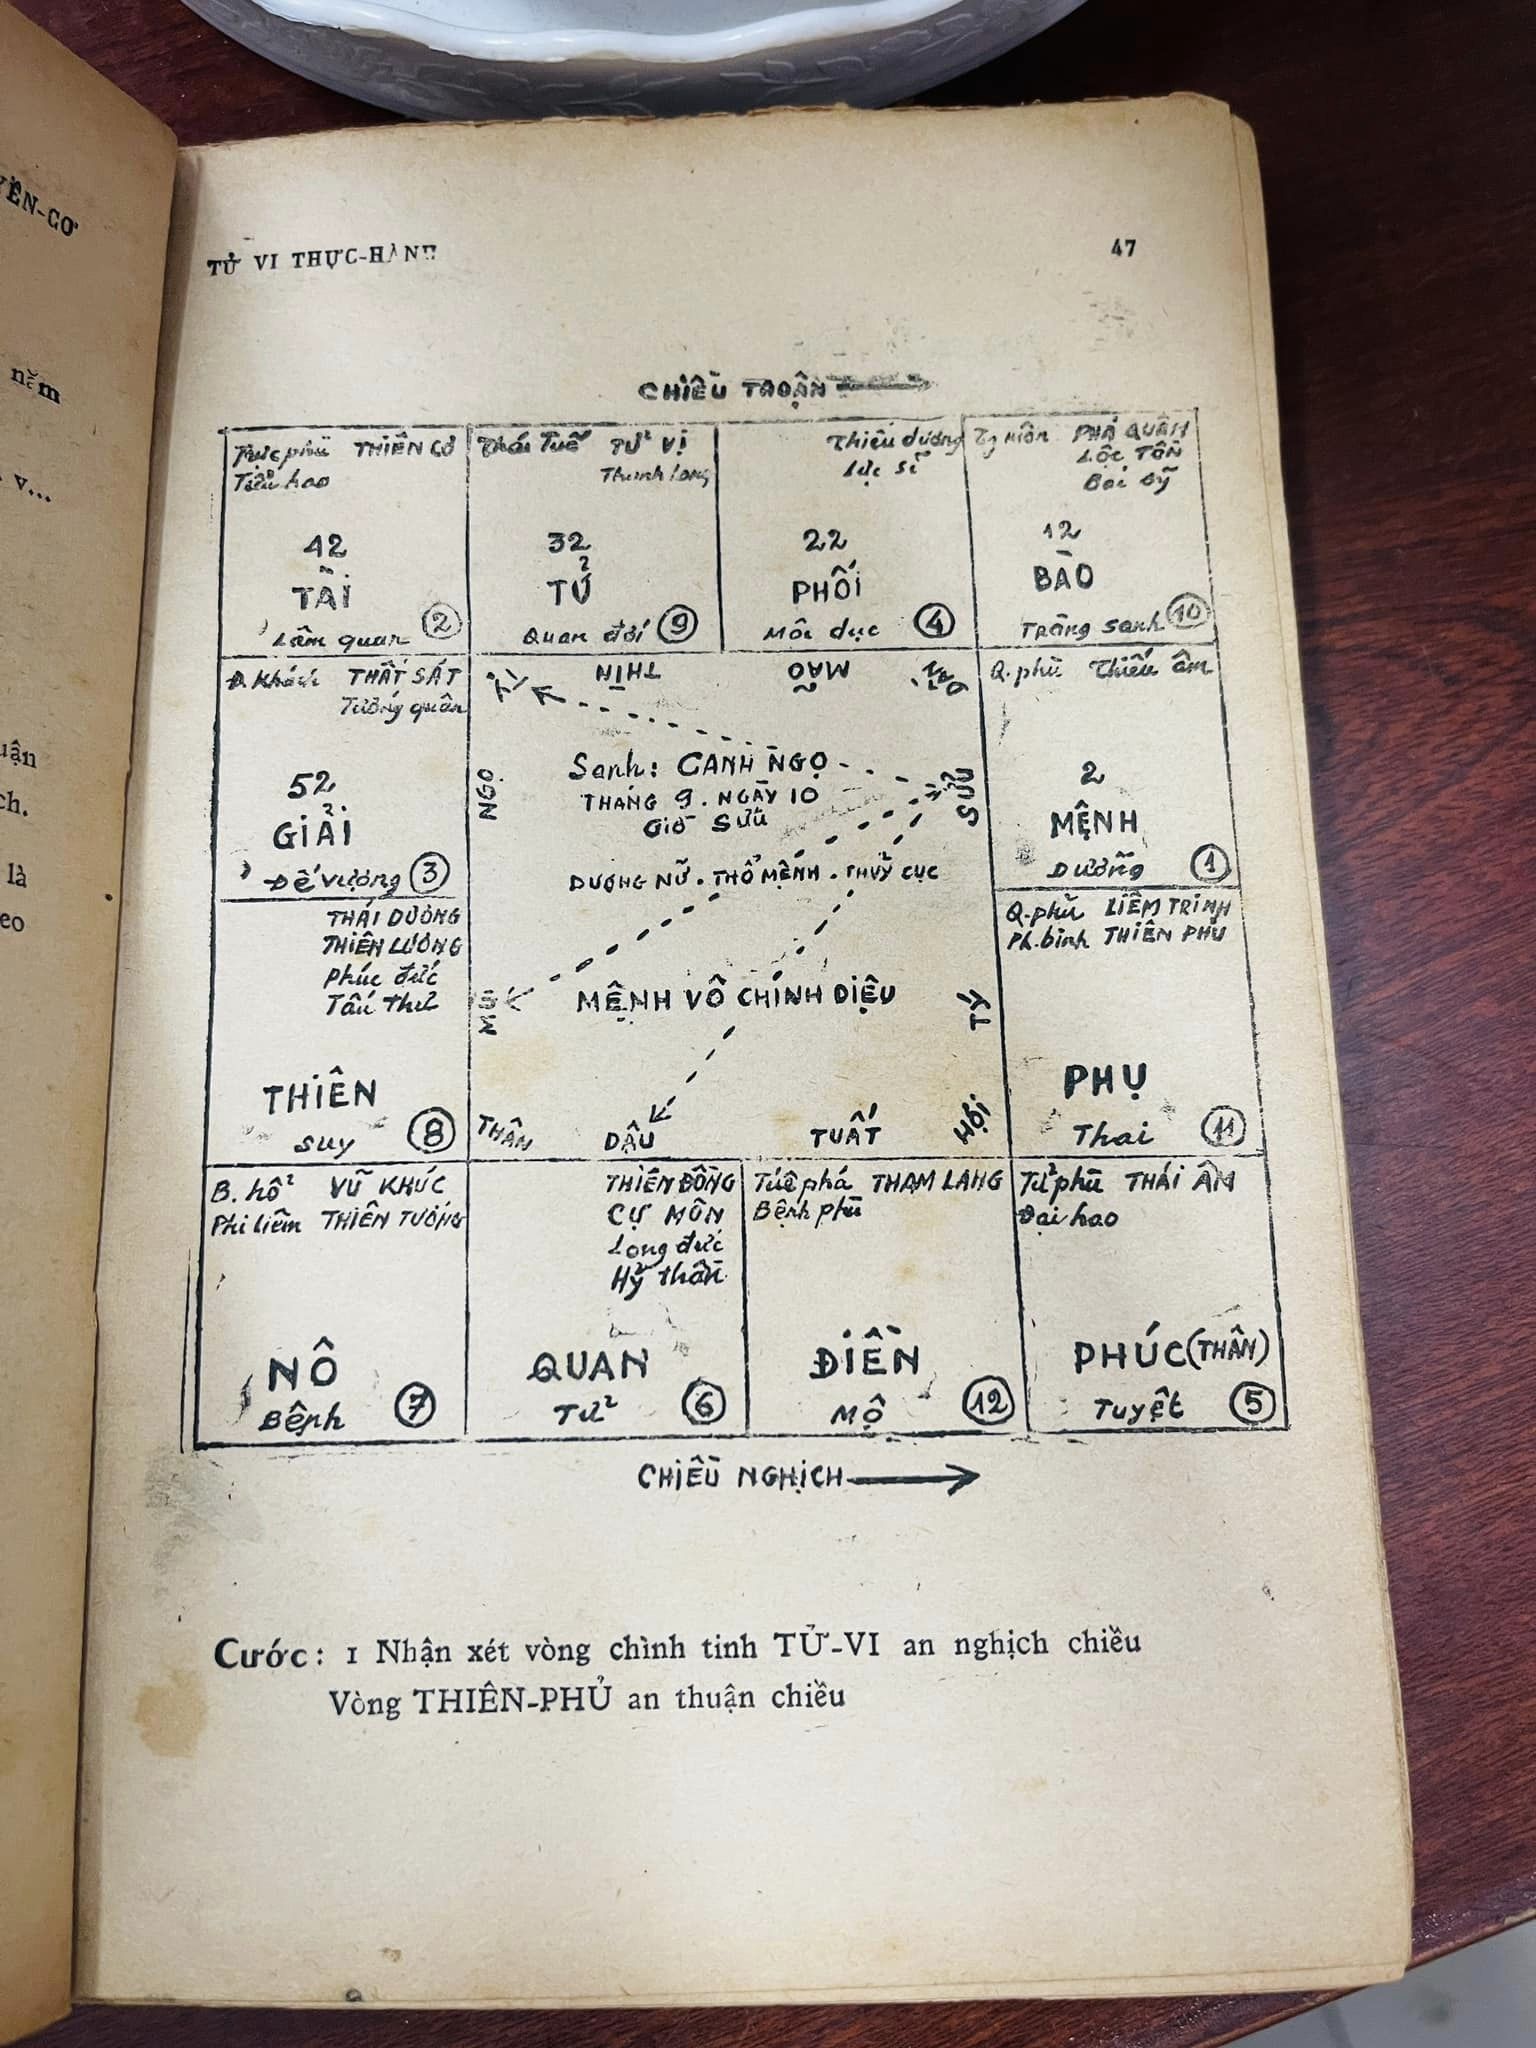 YỀN-CƠ
năm
v...
uận
ch.
là
eo
TỬ VI THỰC-HÀNH
47
CHIỀU THUẬN
Trực phù THIÊN CƠ
Tiểu hao
42
TÀI
Lâm quan 2
Thái Tuế TỬ VI
Thanh Long
32
TỬ
Quan đới 9
Thiếu dương
Lực sĩ
22
PHỐI
Môc dục 4
PHÁ QUÂN
LỘC TỒN
Bác sỹ
12
BÀO
Tràng sanh 10
Đ. Khách THẤT SÁT
Tướng quân
52
GIẢI
Đế vượng 3
TỴ
THÌN
MÃO
DẦN
Q. phù Thiếu âm
2
MỆNH
Dưỡng 1
NGỌ
Sanh: CANH NGỌ
THÁNG 9. NGÀY 10
Giờ SỬU
SỬU
DƯƠNG NỮ. THỔ MỆNH. THUỶ CỤC
THÁI DƯƠNG
THIÊN LƯƠNG
Phúc đức
Tấu thư
THIÊN
Suy 8
MÙI
MỆNH VÔ CHÍNH DIỆU
TÝ
Q. phù LIÊM TRINH
Ph. binh THIÊN PHỦ
PHỤ
Thai 11
THÂN
DẬU
TUẤT
HỢI
B. hổ VŨ KHÚC
Phi liêm THIÊN TƯỚNG
NÔ
Bệnh 7
THIÊN ĐỒNG
CỰ MÔN
Long đức
Hỷ thần
QUAN
Tử 6
Tuế phá THAM LANG
Bệnh phù
ĐIỀN
MỘ 12
Tử phù THÁI ÂM
Đại hao
PHÚC (THÂN)
Tuyệt 5
CHIỀU NGHỊCH
Cước: 1 Nhận xét vòng chình tinh TỬ-VI an nghịch chiều
Vòng THIÊN-PHỦ an thuận chiều